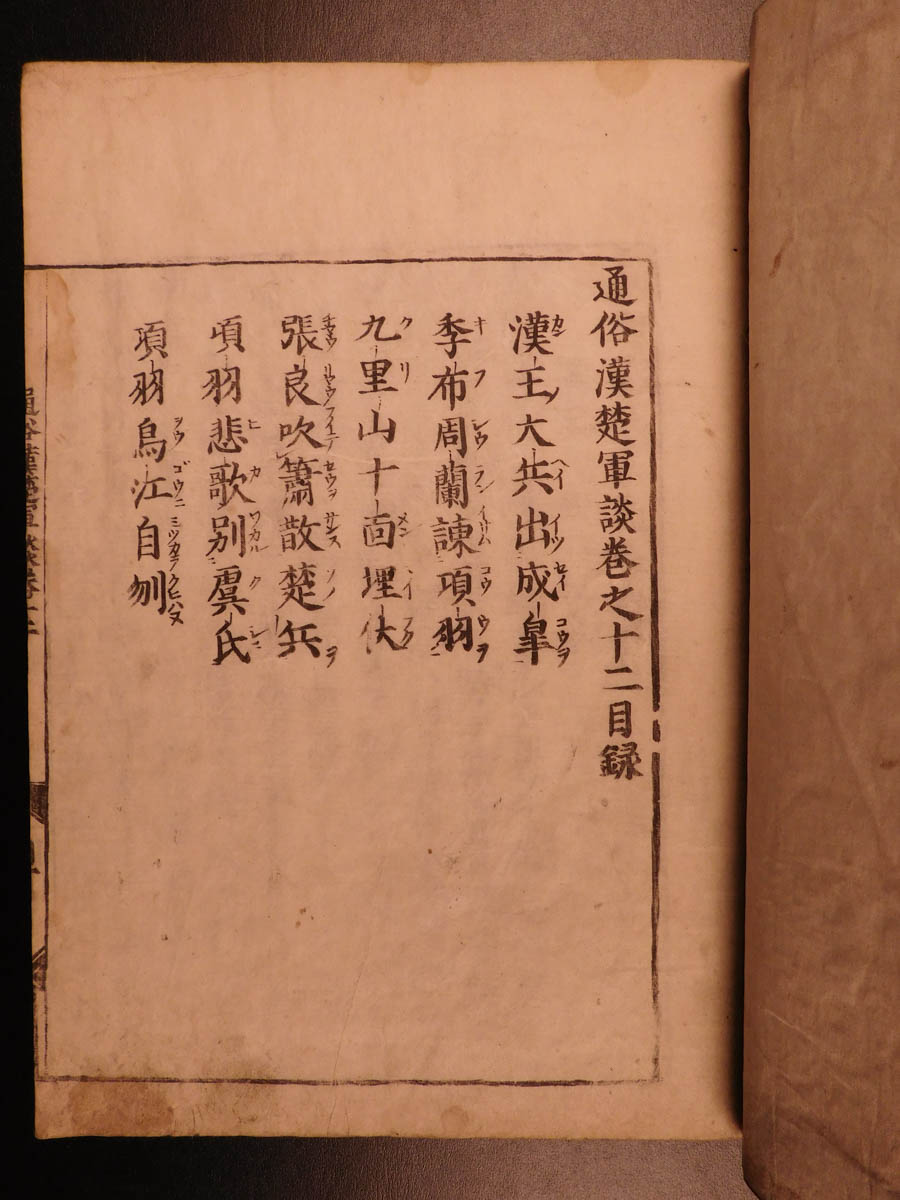 通俗漢楚軍談巻之十二目録
漢王大兵出成皐
季布周蘭諌項羽
九里山十面埋伏
張良吹簫散楚兵
項羽悲歌別虞氏
項羽烏江自刎